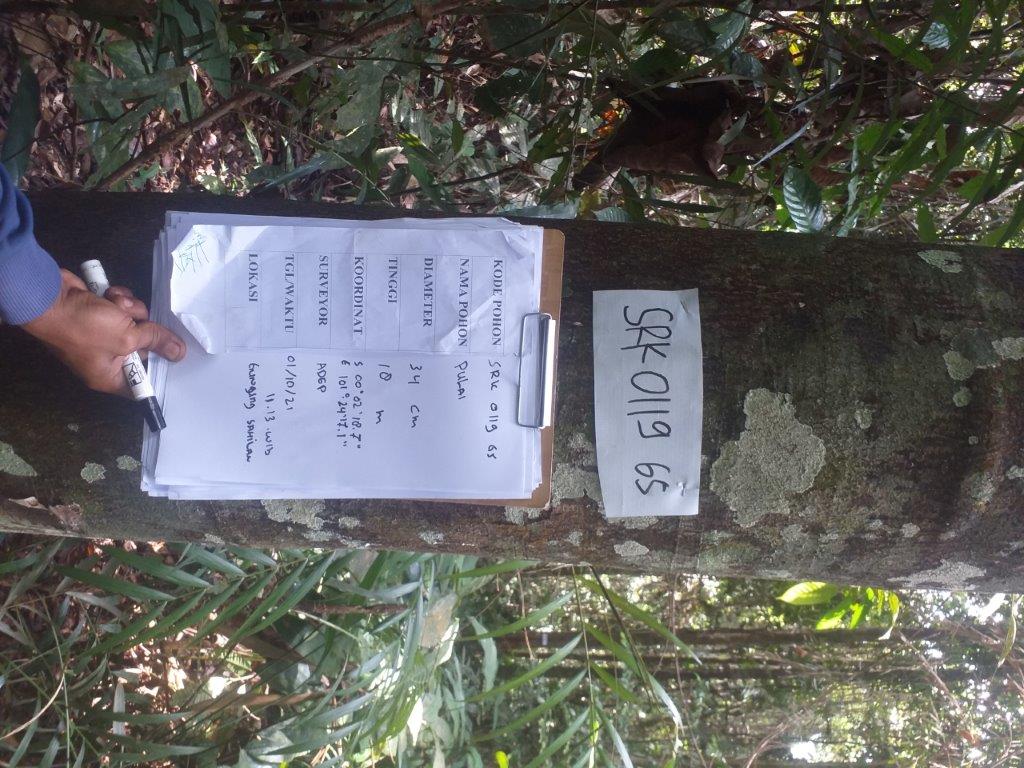 SRK 0119 65
KODE POHON SRK 0119 65
NAMA POHON PULAI
DIAMETER 34 cm
TINGGI 18 m
KOORDINAT S 00°02'18.7"
E 101°24'17.1"
SURVEYOR ADEP
TGL/WAKTU 01/10/21
11.13 WIB
LOKASI GUNUNG SAHILAN